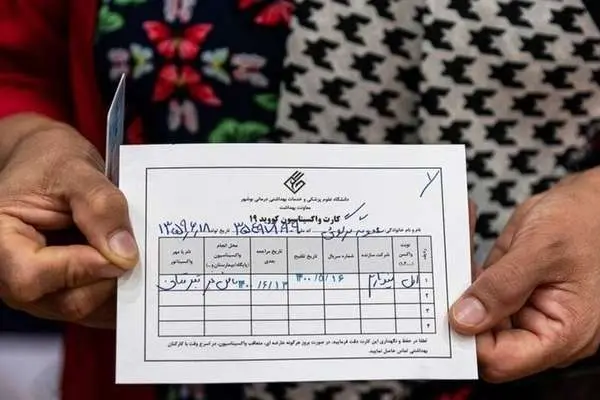 دانشگاه علوم پزشکی و خدمات بهداشتی درمانی بوشهر
معاونت بهداشت
کارت واکسیناسیون کووید ۱۹
نام و نام خانوادگی: کد ملی: تاریخ تولد: ۱۳۵۹/۶/۱۸
ردیف نوبت واکسن (۱،۲،...) شرکت سازنده شماره سریال تاریخ تلقیح تاریخ مراجعه بعدی محل انجام واکسیناسیون (پایگاه/بیمارستان و...) نام یا مهر واکسیناتور
۱ اول ۱۴۰۰/۵/۱۶ ۱۴۰۰/۶/۱۳
۲
۳
۴
لطفا در حفظ و نگهداری این کارت دقت فرمایید. در صورت بروز هرگونه عارضه ای، متعاقب واکسیناسیون، در اسرع وقت با کارکنان
بهداشتی تماس حاصل نمایید.